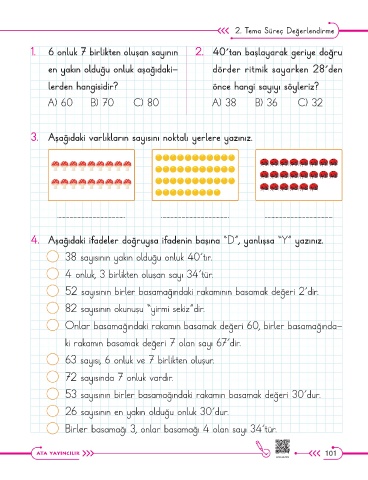 2. Tema Süreç Değerlendirme
1. 6 onluk 7 birlikten oluşan sayının
en yakın olduğu onluk aşağıdaki-
lerden hangisidir?
A) 60 B) 70 C) 80
2. 40'tan başlayarak geriye doğru
dörder ritmik sayarken 28'den
önce hangi sayıyı söyleriz?
A) 38 B) 36 C) 32
3. Aşağıdaki varlıkların sayısını noktalı yerlere yazınız.
4. Aşağıdaki ifadeler doğruysa ifadenin başına "D", yanlışsa "Y" yazınız.
38 sayısının yakın olduğu onluk 40'tır.
4 onluk, 3 birlikten oluşan sayı 34'tür.
52 sayısının birler basamağındaki rakamının basamak değeri 2'dir.
82 sayısının okunuşu "yirmi sekiz"dir.
Onlar basamağındaki rakamın basamak değeri 60, birler basamağında-
ki rakamın basamak değeri 7 olan sayı 67'dir.
63 sayısı; 6 onluk ve 7 birlikten oluşur.
72 sayısında 7 onluk vardır.
53 sayısının birler basamağındaki rakamın basamak değeri 30'dur.
26 sayısının en yakın olduğu onluk 30'dur.
Birler basamağı 3, onlar basamağı 4 olan sayı 34'tür.
ATA YAYINCILIK
101